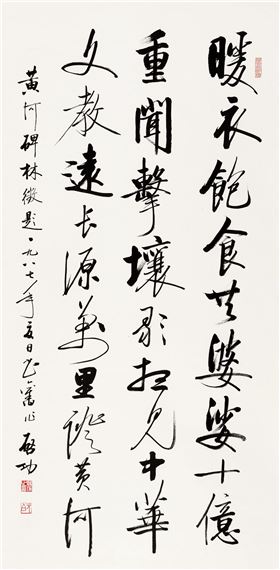 暖衣飽食共婆娑十億
重聞擊壤歌想見中華
文教遠長源萬里證黃河
黃河碑林徵題一九八七年夏日書舊作 啟功